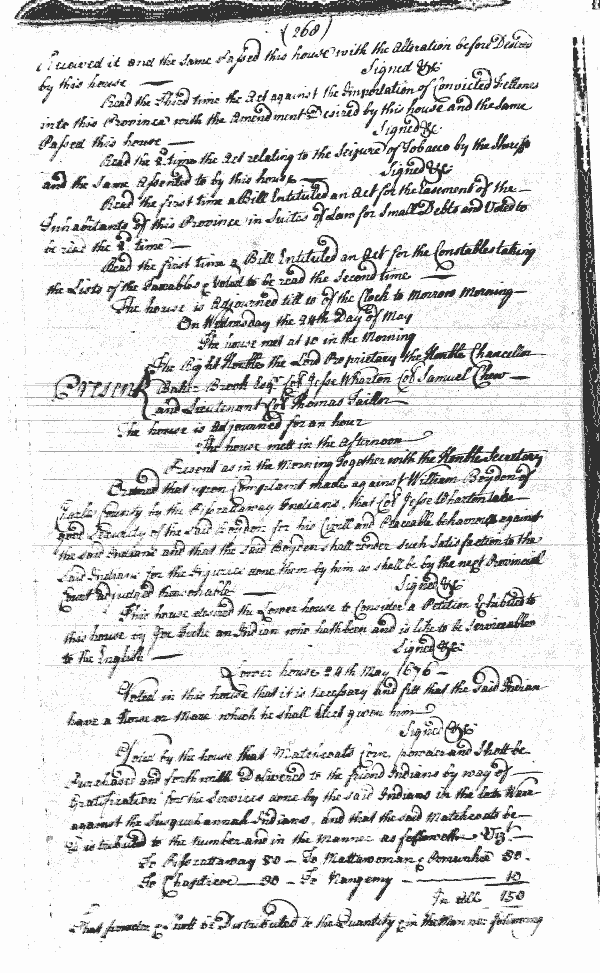 (268)
Received it and the same Passed this house with the Alteration before Desired
by this house — Signed &c
Read the Third time the Act against the Importation of Convicted Fellones
into this Province with the Amendment Desired by this house and the same
Passed this house — Signed &c
Read the 2 time the Act relating to the Seizure of Tobacco by the Sheriffs
and the Same Assented to by this house — Signed &c
Read the first time a Bill Entituled an Act for the easement of the —
Inhabitants of this Province in Suites of Law for Small Debts and Voted to
be read the 2 time —
Read the first time a Bill Entituled an Act for the Constables taking
the Lists of the Taxables & Voted to be read the Second time —
The house is Adjourned till 10 of the Clock to Morrow Morning —
On Wednesday the 24th Day of May
The house met at 10 in the Morning
The Right Honble the Lord Proprietary the Honble Chancellor
Present { Baker Brook Esqr Col Jesse Wharton Col Samuel Chew —
and Lieutenant Col Thomas Taillor
The house is Adjourned for an hour
The house mett in the Afternoon
Present as in the Morning together with the Honble Secretary
Ordered that upon Complaint made against William Boyden of
County by the Piscattaway Indians, that Col Jesse Wharton take
good Security of the said Boyden for his Civill and Peaceable behaviour against
the said Indians and that the said Boyden shall render such Satisfaction to the
said Indians for the Injuries done them by him as shall be by the next Provincial
Court adjudged reasonable — Signed &c
This house desired the Lower house to Consider a Petition Exhibited to
this house by an Indian who hath been and is like to be Serviceable
to the English — Signed &c
Lower house 24th May 1676 —
Voted in this house that it is necessary and fitt that the said Indian
have a Horse or Mare which he shall Elect given him —
Signed &c
Voted by the house that Matchcoats Corn, powder and Shott be
Purchased and forthwith Delivered to the friend Indians by way of
Gratification for the Services done by the said Indians in the late Warr
against the Susquehannah Indians, and that the said Matchcoats be —
Distributed to the number and in the Manner as followeth Vizt —
To Piscattaway 80 — To Mattawoman & 30.
To Chaptico — 30 — To Nangemy — 10
In all 150
That powder & Shott be Distributed to the Quantity & in the Manner following